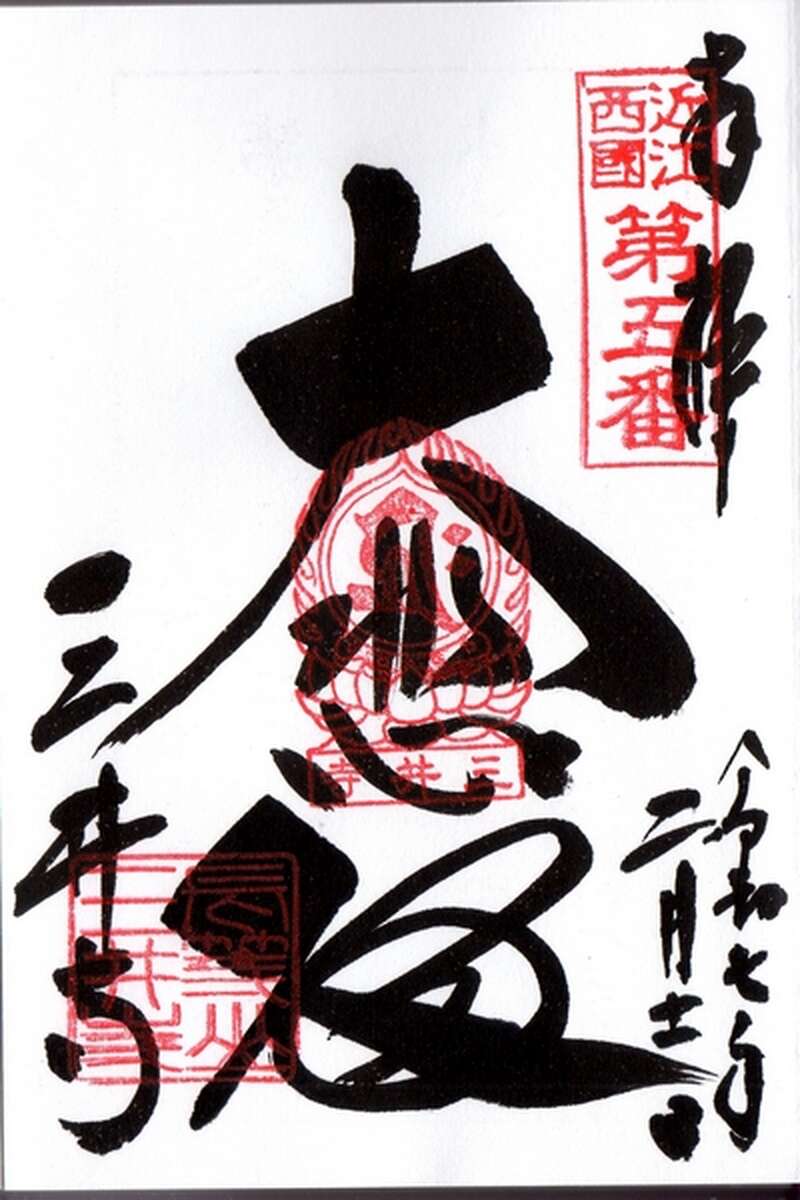 奉拝
近江
西國
第五番
令和七年
二月十一日
大悲殿
三井寺
三井寺
長等山
三井寺